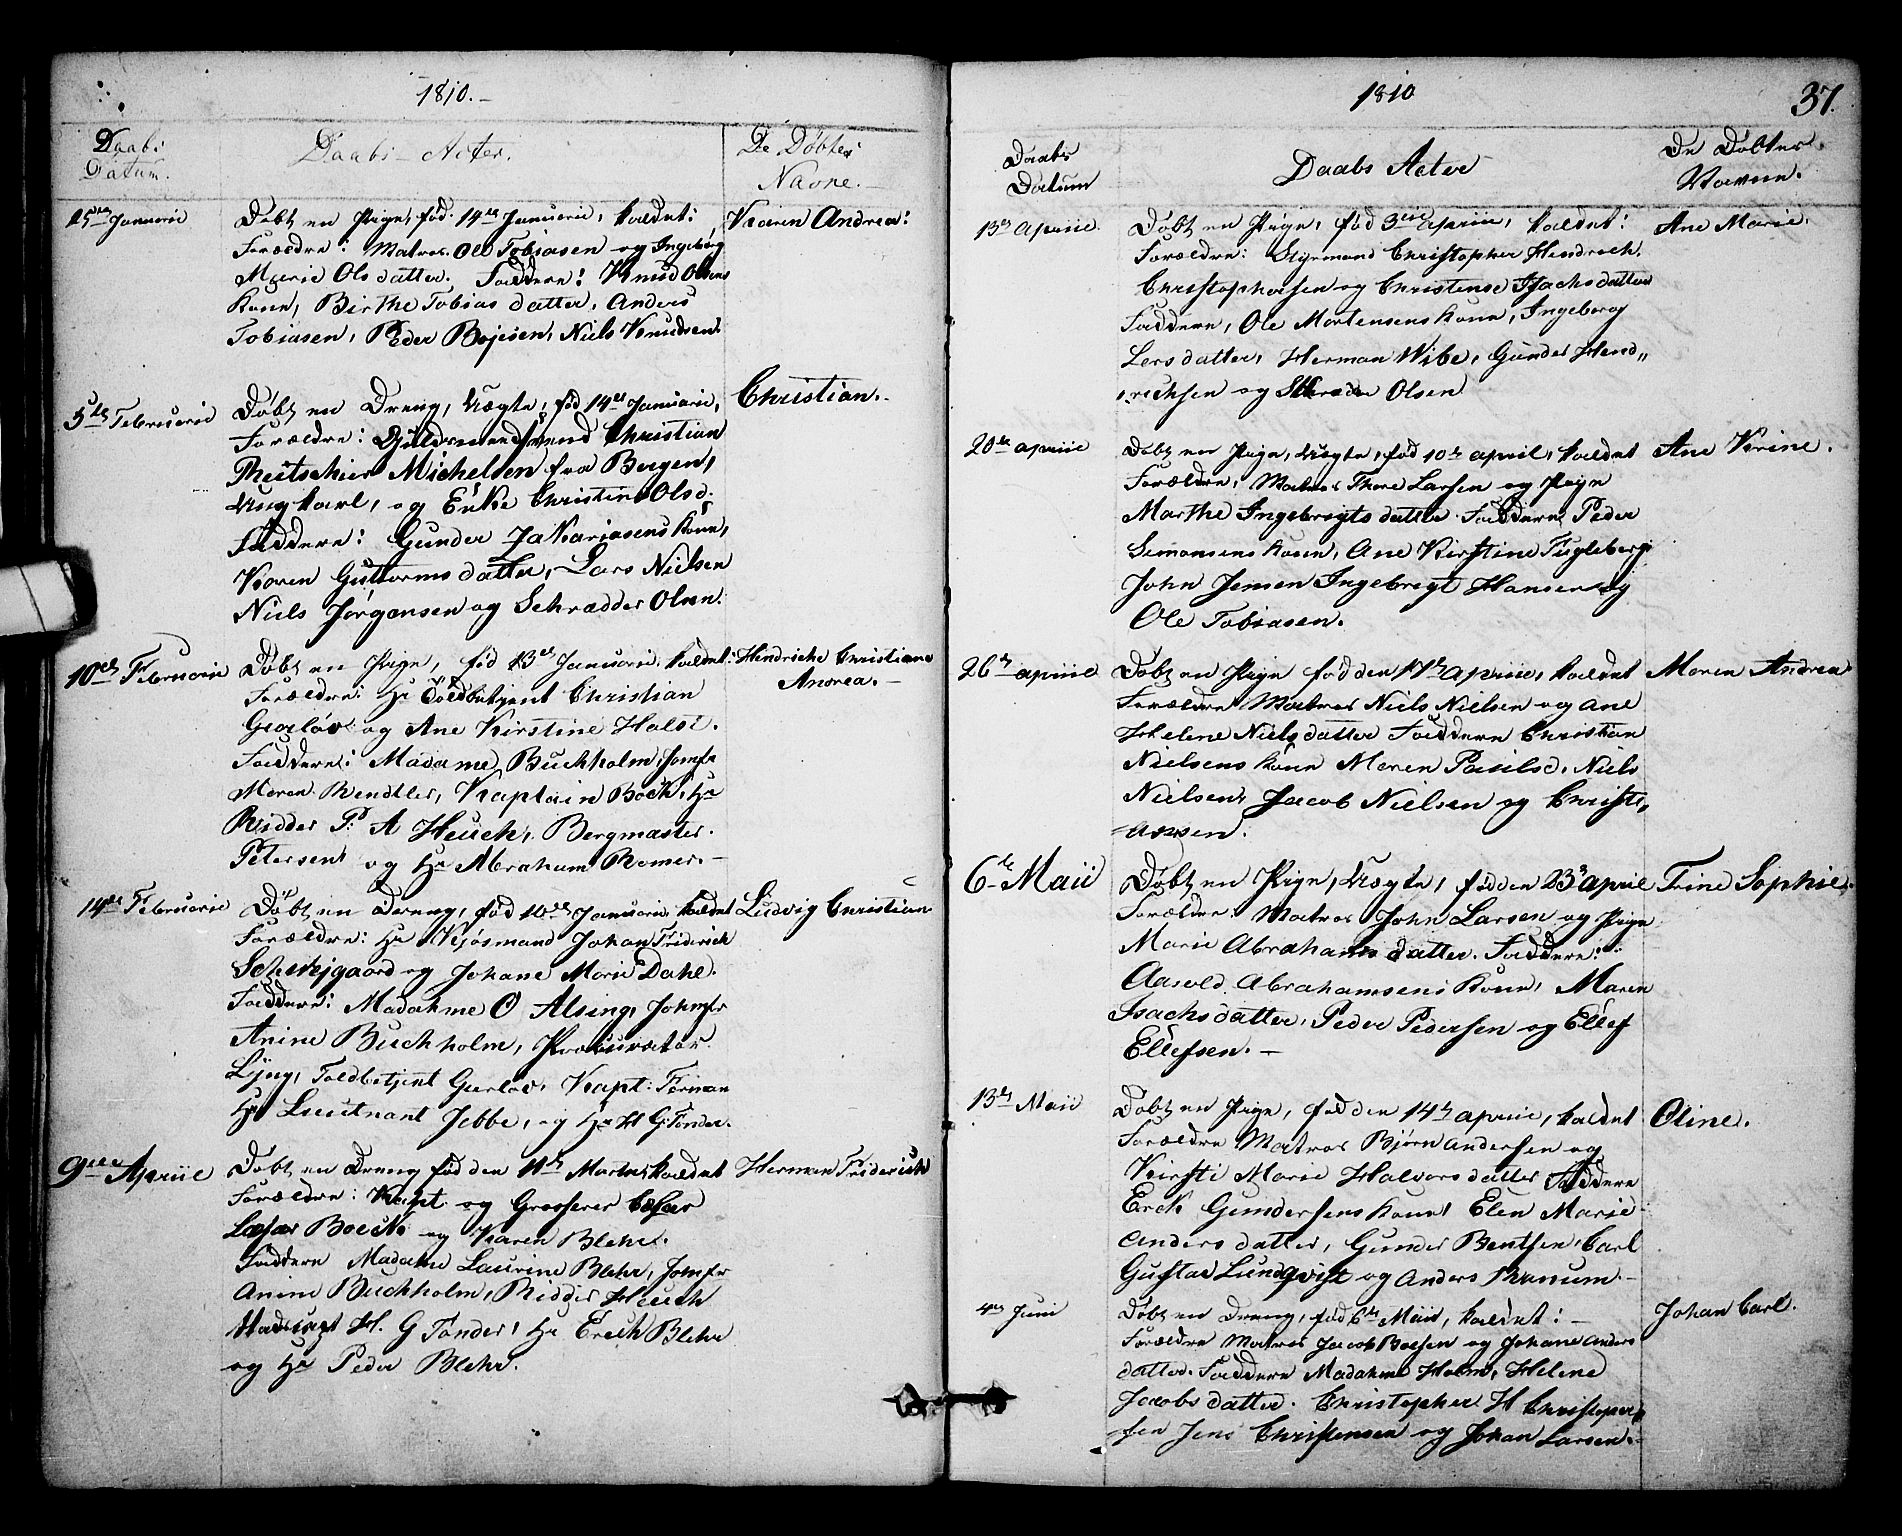 1810.-
Daabs Datum.
Daabs-Acter.
De Døbtes Navne.-
25de Januarii
Døbt en Pige, fød 14de Januarii, kaldet:
Karen Andrea:
Forældre: Matros Ole Tobiasen og Ingeborg
Marie Olsdatter. Faddere: Knud Olsens
Kone, Birthe Tobiasdatter, Anders
Tobiasen, Peder Bojesen, Niels Knudsen.
5te Februarii
Døbt en Dreng, Uægte, fød 14de Januarii,
Christian.-
Forældre: Guldsmedsvend Christian
Michelsen fra Bergen,
Ungkarl, og Christine Olsd.
Faddere: Gunder Zakariasens Kone,
Karen Guttormsdatter, Lars Nielsen
Niels Jørgensen og Schrædder Olsen.
10de Februarii
Døbt en Pige, fød 13de Januarii, kaldet:
Hindriche Christiane
Andrea.-
Forældre: Hr Toldbetjent Christian
Gierløv og Ane Kirstine Halst.
Faddere: Madame Buchholm, Jomfr
Maren Rendtler, Kaptain Boeck, Hr
Ridder P: A Heuch, Bergmæster
Petersen, og Hr Abraham Romer.-
14de Februarii
Døbt en Dreng, fød 10de Januarii, kaldet
Ludvig Christian
Forældre: Hr Kjøbmand Johan Friderich
Schwejgaard og Johane Marie Dahl.
Faddere: Madahme O Alsing, Jomfr
Anine Buchholm, Prokurator
Ljng, Toldbetjent Gierløv, Kapt: Forman
Hr Lieutnant Jebbe, og Hr H G Tonder.
9de Apriie
Døbt en Dreng fød den 11te Martii, kaldet
Herman Friderich
Forældre: Kapt og Grosserer Cæsar
Læsar Boeck og Karen Blehr.
Faddere Madame Laurine Blehr, Jomfr
Anine Buchholm, Ridder Heuch
H. G Tonder, Hr Erich Blehr
og Hr Peder Blehr.
1810
37.
Daabs Datum
Daabs Acter
De Døbtes Navne.
13de Apriie.
Døbt en Pige, fød 3die apriie, kaldet:
Ane Marie.
Forældre: Styrmand Christopher Hendrech
Christophersen og Christense Isachsdatter
Faddere, Ole Mortensens Kone, Ingeborg
Larsdatter, Herman Wibe, Gunder Hend„
rechsen og Schræder Olsen
20de apriie
Døbt en Pige, Uægte, fød 10de april, kaldet
Ane Kirine.
Forældre, Matros Thore Larsen og Pige
Marthe Ingebregtsdatter. Faddere Peder
Simonsens Kone, Ane Kirstine Fugleberg
John Jensen Ingebregt Hansen og
Ole Tobiasen.
26de apriie
Døbt en Pige fød den 11te apriie, kaldet
Maren Andrea
Forældre Matros Niels Nielsen og Ane
Helene Nielsdatter Faddere Christian
Nielsens Kone Maren Paulsd. Niels
Nielsen, Jacob Nielsen og Christi„
ansen.
6te Maii
Døbt en Pige, Uægte, fød den 23de april
Trine Sophie.
Forældre. Matros John Larsen og Pige
Marie Abrahamsdatter. Faddere:
Aasold Abrahamsens Kone, Maren
Isachsdatter, Peder Pedersen og Ellef
Ellefsen.-
13de Maii
Døbt en Pige, fød den 14de apriie, kaldet
Oline.
Forældre Matros Bjørn Andersen og
Kirsti Marie Halvorsdatter Faddere
Erck Gundersens Kone, Elen Marie
Andersdatter, Gunder Bentsen, Carl
Gustav Lundqvist og Anders Branum.-
4de Juni
Døbt en Dreng, fød 6te Maii, kaldet:-
Johan Carl.
Forældre Matros Jacob Boesen og Johane Anders
datter. Faddere Madahme Holm, Helene
Jacobsdatter. Christopher H Christopher„
sen Jens Christensen og Johan Larsen.-